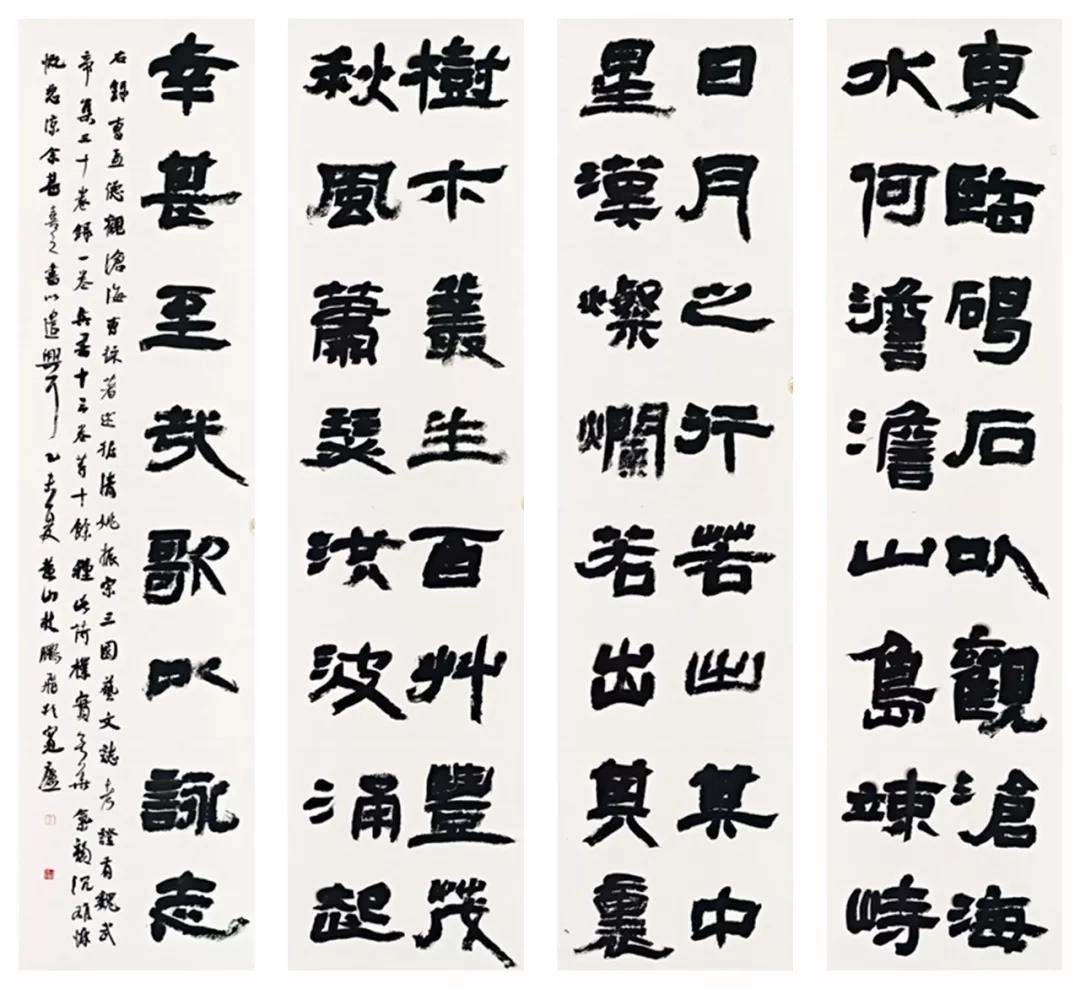 東臨碣石以觀滄海
水何澹澹山島竦峙
日月之行若出其中
星漢燦爛若出其裏
樹木叢生百艸豐茂
秋風蕭瑟洪波涌起
幸甚至哉歌以詠志
右錄曹孟德觀滄海曹操著述据清姚振宗三國藝文誌考證有魏武
帝集三十卷錄一卷兵書十三卷等十餘種此詩樸實無華氣韻沉雄慷
慨悲涼余甚喜之書以遣興耳乙未夏黃山鵬飛於寬廬